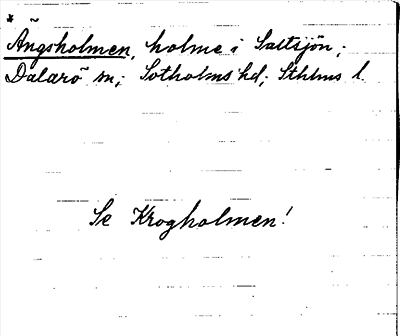 *
Ängsholmen, holme i Saltsjön,
Dalarö sn; Sotholms hd; Sthlms l.
Se Krogholmen!